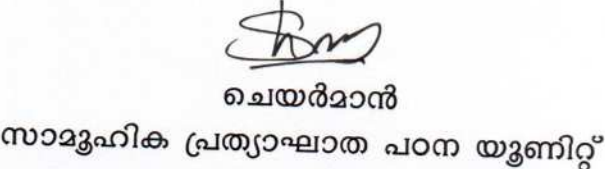 ചെയർമാൻ
സാമൂഹിക പ്രത്യാഘാത പഠന യൂണിറ്റ്